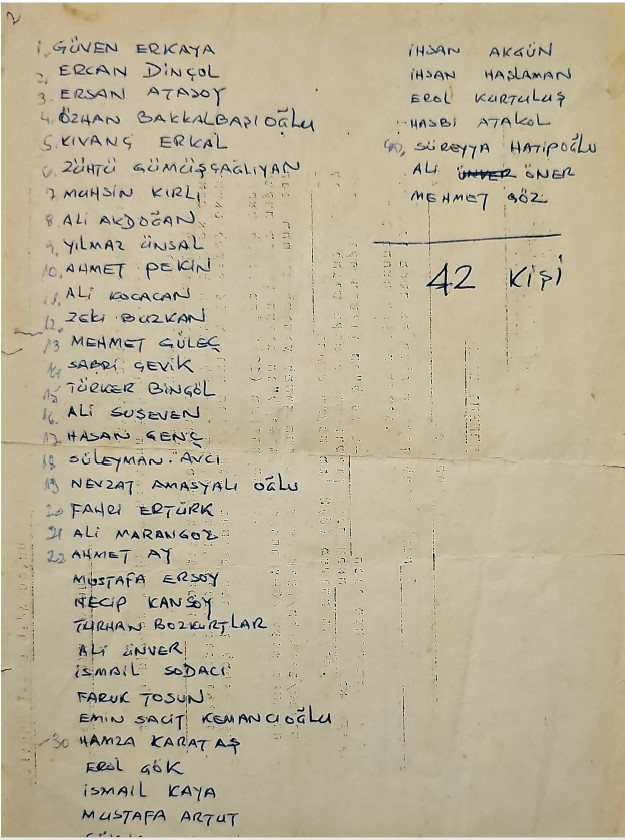 2
1. GÜVEN ERKAYA
2. ERCAN DİNÇOL
3. ERSAN ATASOY
4. ÖZHAN BAKKALBAŞIOĞLU
5. KIVANÇ ERKAL
6. ZÜHTÜ GÜMÜŞÇAĞLIYAN
7 MUHSİN KIRLI
8 ALİ AKDOĞAN
9. YILMAZ ÜNSAL
10. AHMET PEKİN
11. ALİ KOCACAN
12. ZEKİ BOZKAN
13 MEHMET GÜLEÇ
14 SABRİ ÇEVİK
15 TÜRKER BİNGÖL
16. ALİ SUSEVEN
17. HASAN GENÇ
18 SÜLEYMAN AVCI
19 NEVZAT AMASYALI OĞLU
20 FAHRİ ERTÜRK
21 ALİ MARANGOZ
22 AHMET AY
MUSTAFA ERSOY
NECİP KANSOY
TURHAN BOZKURTLAR
ALİ ÜNVER
İSMAİL SODACI
FARUK TOSUN
EMİN SACİT KEMANCIOĞLU
30 HAMZA KARATAŞ
EROL GÖK
İSMAİL KAYA
MUSTAFA ARTUT
İHSAN AKGÜN
İHSAN HASLAMAN
EROL KURTULUŞ
HASBİ ATAKOL
40, SÜREYYA HATİPOĞLU
ALİ ÜNVER ÖNER
MEHMET GÖZ
42 KİŞİ